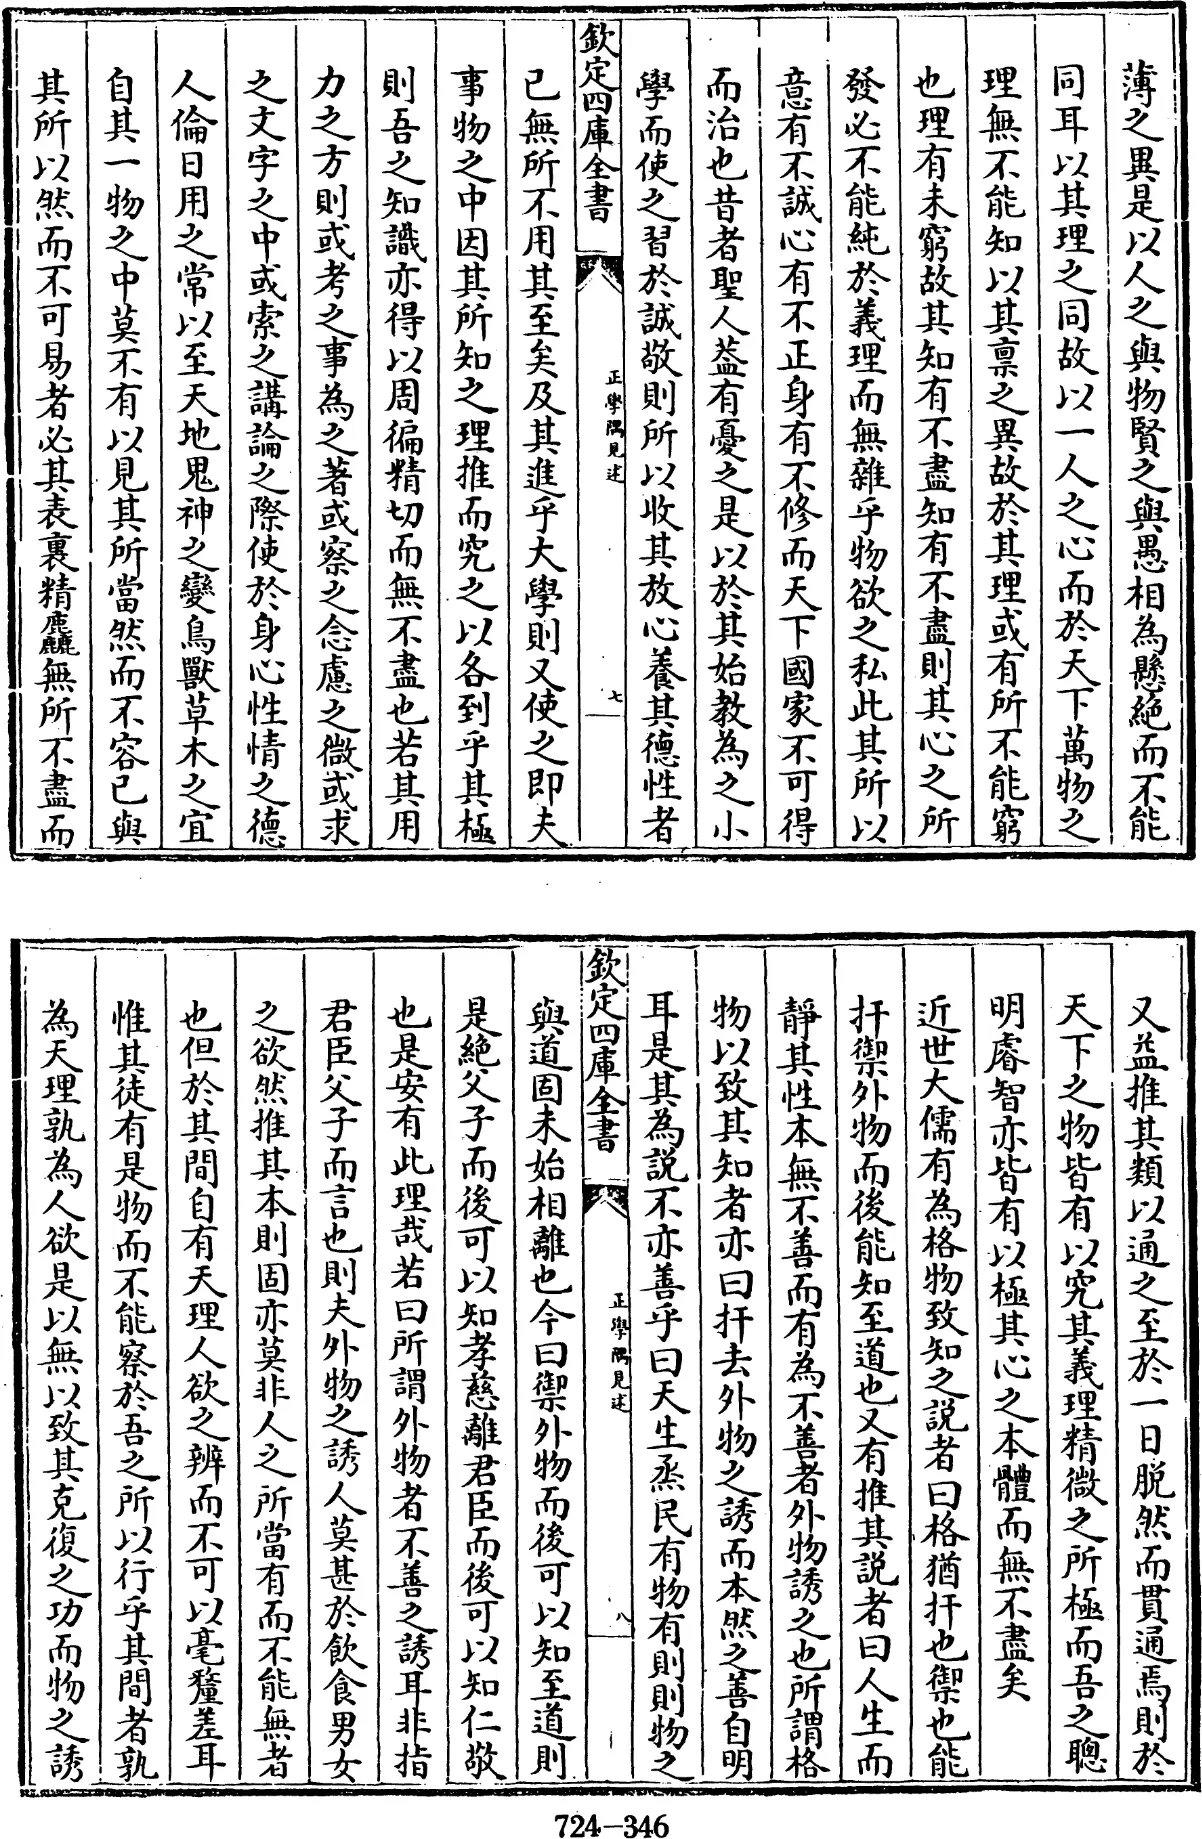 薄之異是以人之與物賢之與愚相為懸絶而不能
同耳以其理之同故以一人之心而於天下萬物之
理無不能知以其禀之異故於其理或有所不能窮
也理有未窮故其知有不盡知有不盡則其心之所
發必不能純於義理而無雜乎物欲之私此其所以
意有不誠心有不正身有不修而天下國家不可得
而治也昔者聖人葢有憂之是以於其始教為之小
學而使之習於誠敬則所以收其放心養其德性者
欽定四庫全書
正學隅見述
七
已無所不用其至矣及其進乎大學則又使之即夫
事物之中因其所知之理推而究之以各到乎其極
則吾之知識亦得以周徧精切而無不盡也若其用
力之方則或考之事為之著或察之念慮之微或求
之文字之中或索之講論之際使於身心性情之德
人倫日用之常以至天地鬼神之變鳥獸草木之宜
自其一物之中莫不有以見其所當然而不容已與
其所以然而不可易者必其表裏精麤無所不盡而
又益推其類以通之至於一日脱然而貫通焉則於
天下之物皆有以究其義理精微之所極而吾之聰
明睿智亦皆有以極其心之本體而無不盡矣
近世大儒有為格物致知之説者曰格猶扞也禦也能
扞禦外物而後能知至道也又有推其説者曰人生而
靜其性本無不善而有為不善者外物誘之也所謂格
物以致其知者亦曰扞去外物之誘而本然之善自明
耳是其為説不亦善乎曰天生烝民有物有則則物之
欽定四庫全書
正學隅見述
八
與道固未始相離也今曰禦外物而後可以知至道則
是絶父子而後可以知孝慈離君臣而後可以知仁敬
也是安有此理哉若曰所謂外物者不善之誘耳非指
君臣父子而言也則夫外物之誘人莫甚於飲食男女
之欲然推其本則固亦莫非人之所當有而不能無者
也但於其間自有天理人欲之辨而不可以毫釐差耳
惟其徒有是物而不能察於吾之所以行乎其間者孰
為天理孰為人欲是以無以致其克復之功而物之誘
724-346